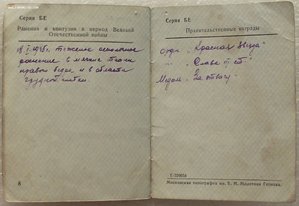 Серия БЕ
Ранения и контузии в период Великой
Отечественной войны
тяжелое осколочное
ранение в мягкие ткани
правого бедра и в области
грудной клетки.
8
Серия БЕ
Правительственные награды
Орден "Красная Звезда"
"Слава
Медаль "За отвагу"
Московская типография им. В. М. Молотова Гознака.